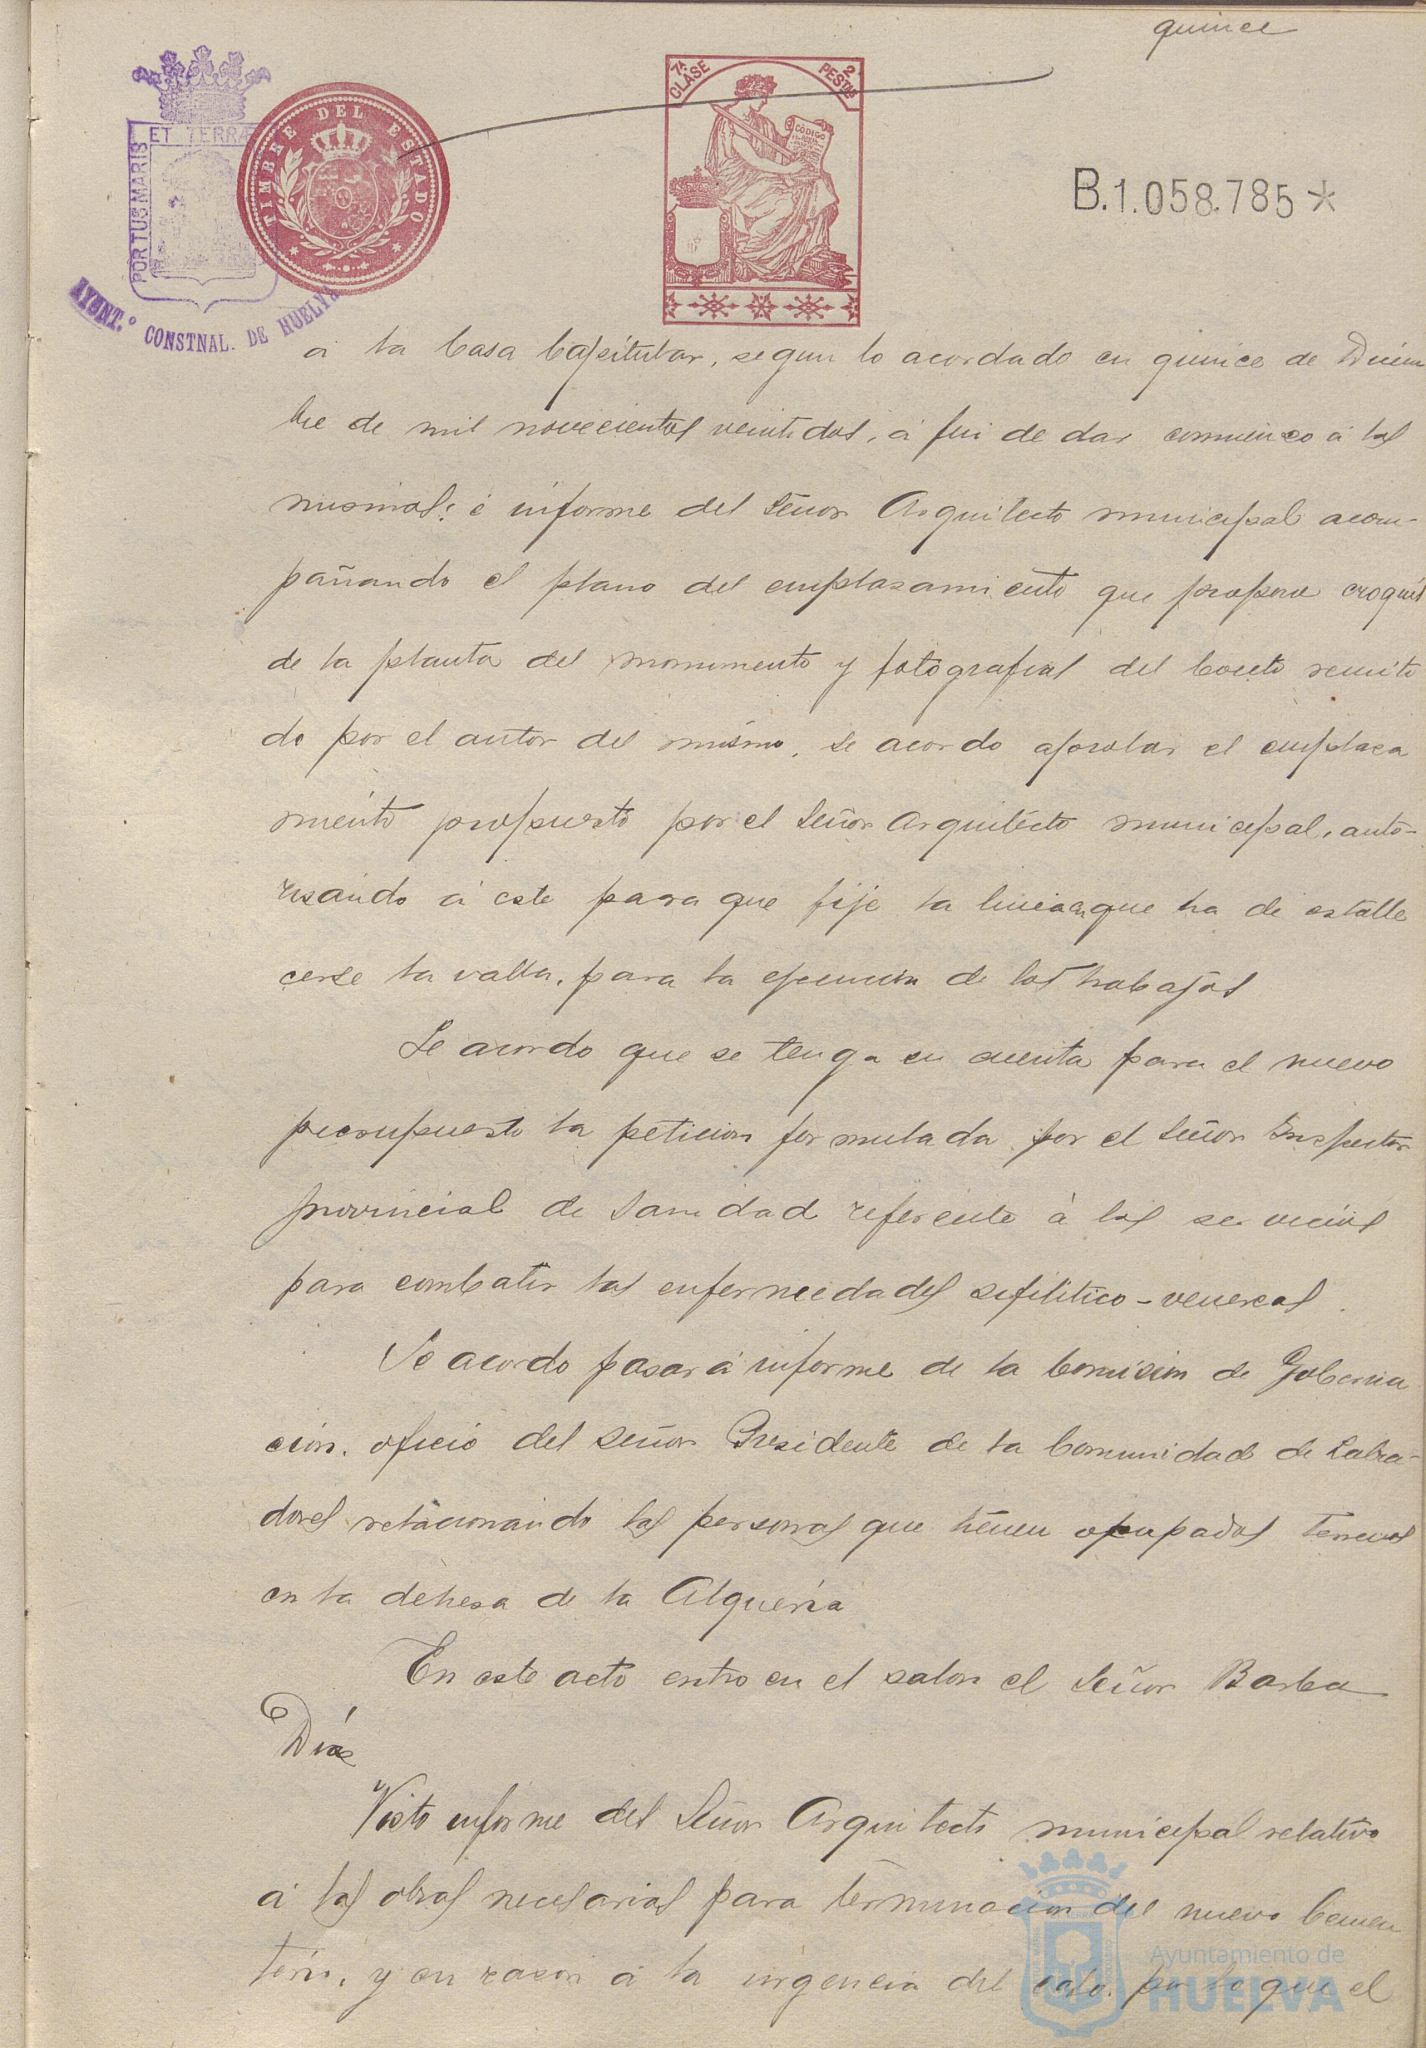 quince
7ª CLASE
2 PESTAS
CÓDIGO
TIMBRE DEL ESTADO
ET TERRÆ
PORTUS MARIS
AYUNT.º CONSTNAL. DE HUELVA
B.1.058.785*
á la Casa Capitular, segun lo acordado en quince de Diciem
bre de mil novecientos veintidos, á fin de dar comienzo á las
mismas: é informe del Señor Arquitecto municipal acom-
pañando el plano del emplazamiento que propone croquis
de la planta del monumento y fotografias del boceto remiti
do por el autor del mismo, se acordo aprobar el emplaza
miento propuesto por el Señor Arquitecto municipal, auto-
rizando á este para que fije la linea en que ha de estable
cerse la valla, para la ejecucion de los trabajos
Se acordo que se tenga en cuenta para el nuevo
presupuesto la peticion formulada por el Señor Inspector
provincial de Sanidad referente á los servicios
para combatir las enfermedades sifilitico-venereas.
Se acordo pasar á informe de la Comision de Goberna
cion, oficio del señor Presidente de la Comunidad de Labra-
dores relacionando las personas que tienen ocupados terrenos
en la dehesa de la Alqueria
En este acto entro en el salon el Señor Barba
Diaz
Visto informe del Señor Arquitecto municipal relativo
á las obras necesarias para terminacion del nuevo Cemen
terio, y en razon á la urgencia del caso, por lo que el
Ayuntamiento de
HUELVA